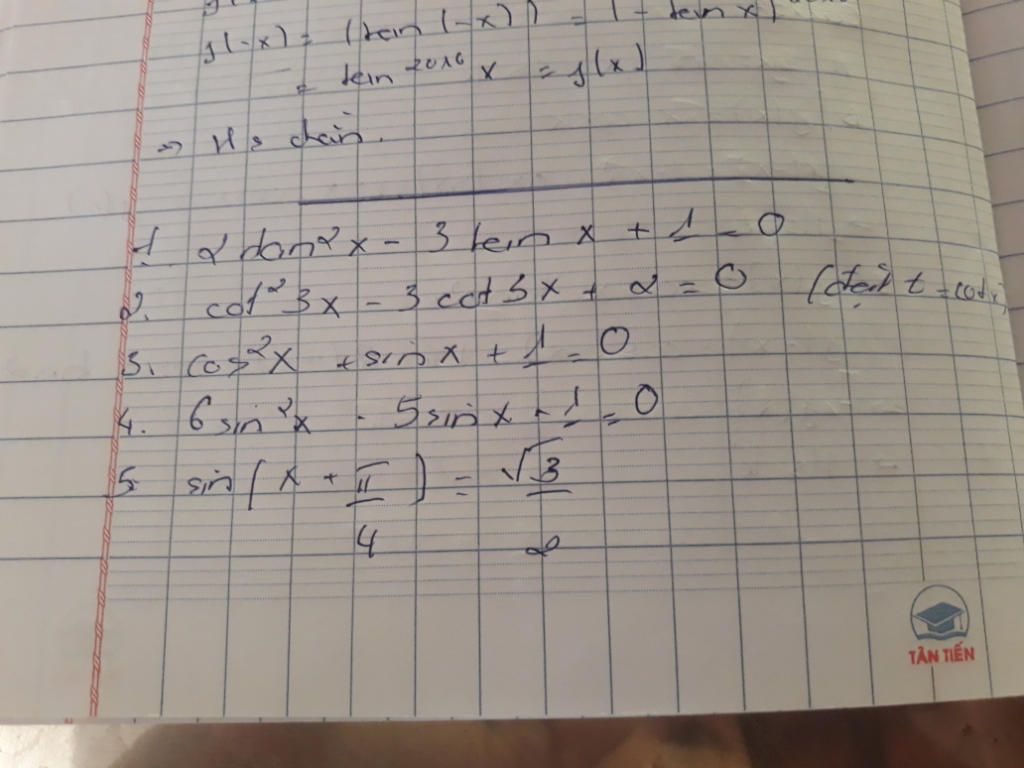 f(-x) = (tan(-x)) = (-tan x)
= tan²⁰¹⁶ x = f(x)
=> Hs chẵn.
1 2 tan²x - 3 tan x + 1 = 0
2. cot² 3x - 3 cot 3x + 2 = 0 (đặt t = cot
3. cos²x + sin x + 1 = 0
4. 6 sin²x - 5 sin x + 1 = 0
5 sin(x + π/4) = √3/2
TÂN TIẾN